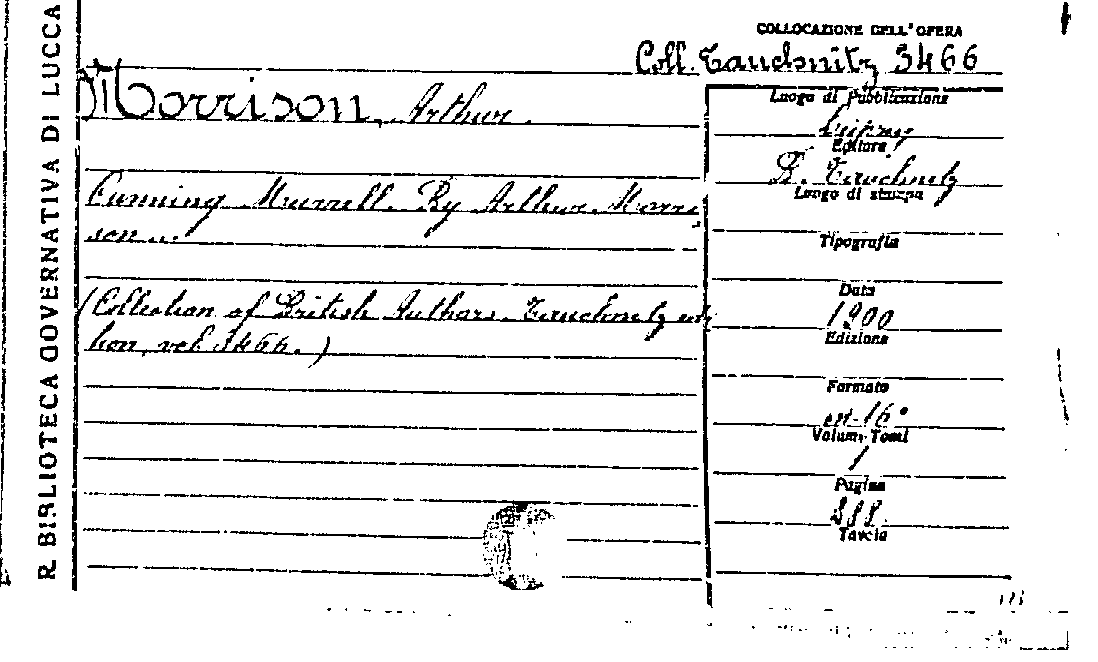 R. BIBLIOTECA GOVERNATIVA DI LUCCA
COLLOCAZIONE DELL'OPERA
Coll. Tauchnitz 3466
Morrison, Arthur.
Cunning Murrell. By Arthur Morri-
son...
(Collection of British Authors. Tauchnitz edi-
tion, vol. 3466.)
Luogo di Pubblicazione
Leipzig
Editore
B. Tauchnitz
Luogo di stampa
Tipografia
Data
1900
Edizione
Formato
in-16°
Volumi-Tomi
1
Pagine
Tavole